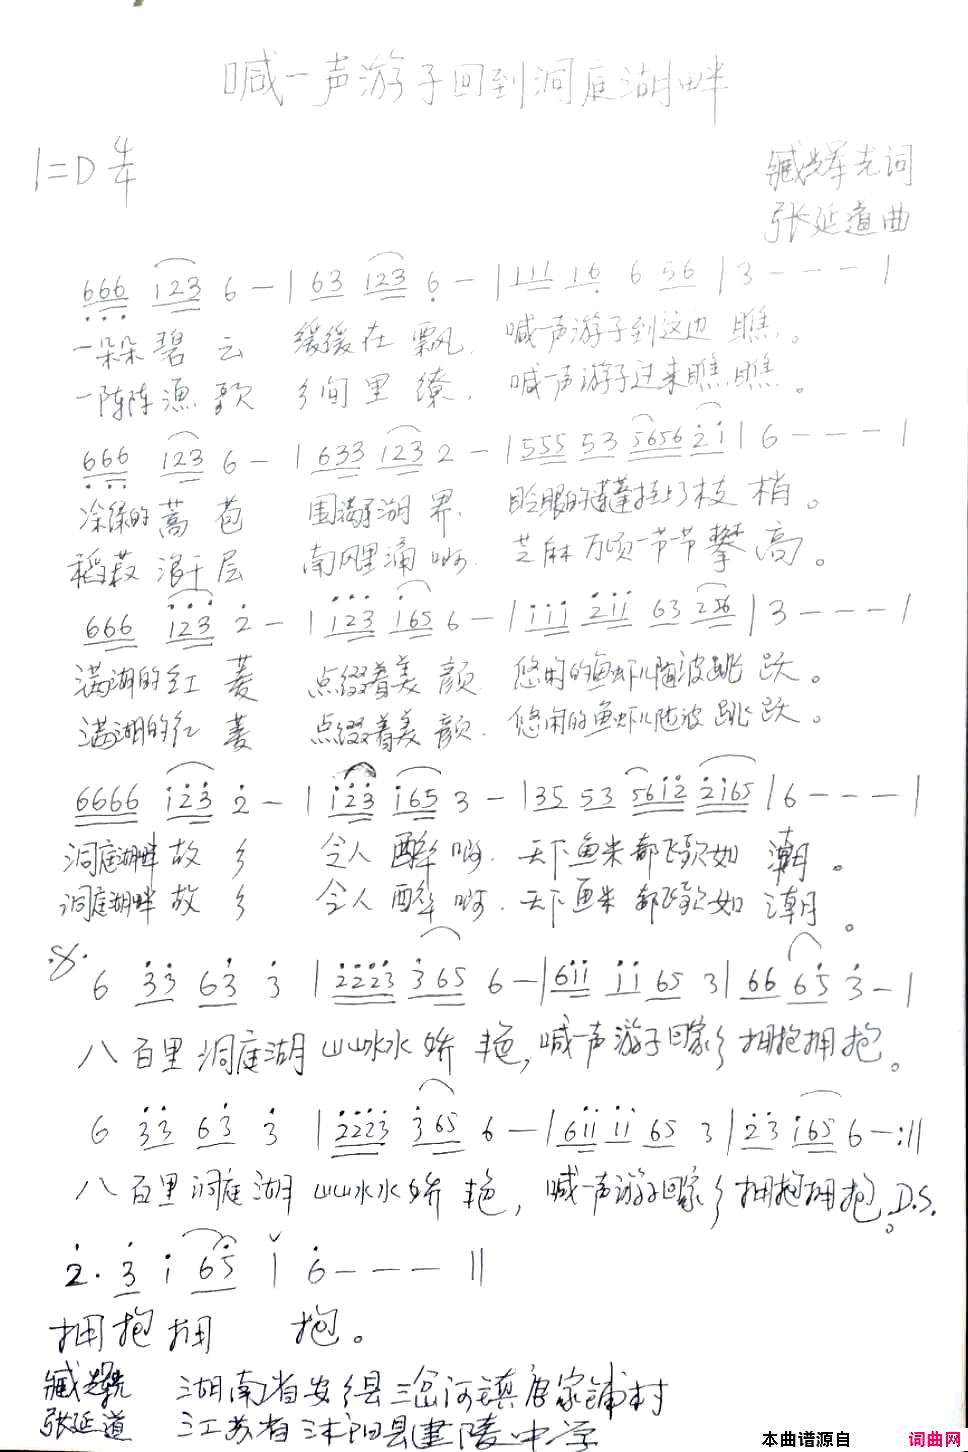 喊一声游子回到洞庭湖畔
1=D 4/4
臧辉先词
张延道曲
666 123 6 - | 63 123 6 - | 111 16 6 56 | 3 - - - |
一朵朵碧云 缓缓在飘. 喊一声游子到这边瞧。
一阵阵渔歌 乡间里缭. 喊一声游子过来瞧瞧。
666 123 6 - | 633 123 2 - | 555 53 5656 21 | 6 - - - |
涂绿的蒿苞 围满了湖界. 眨眼的莲蓬挂上了枝梢。
稻菽浪千层 南风里涌啊. 芝麻万顷一节节攀高。
666 123 2 - | 123 165 6 - | 111 211 63 256 | 3 - - - |
满湖的红菱 点缀着美颜 悠闲的鱼虾儿随波跳跃。
满湖的红菱 点缀着美颜. 悠闲的鱼虾儿随波跳跃。
6666 123 2 - | 123 165 3 - | 35 53 5612 2165 | 6 - - - |
洞庭湖畔故乡 令人醉啊. 天下鱼米都飞歌如潮。
洞庭湖畔故乡 令人醉啊. 天下鱼米都飞歌如潮。
6 33 63 3 | 2223 365 6 - | 611 11 65 3 | 66 65 3 - |
八百里洞庭湖山山水水娇艳,喊一声游子回家乡拥抱拥抱。
6 33 63 3 | 2223 365 6 - | 611 11 65 3 | 23 165 6 - :||
八百里洞庭湖山山水水娇艳,喊一声游子回家乡拥抱拥抱。D.S.
2. 3 1 65 | 6 - - - ||
拥抱拥 抱。
臧辉先 湖南省安乡县三岔河镇唐家铺村
张延道 江苏省沭阳县建陵中学
本曲谱源自 词曲网